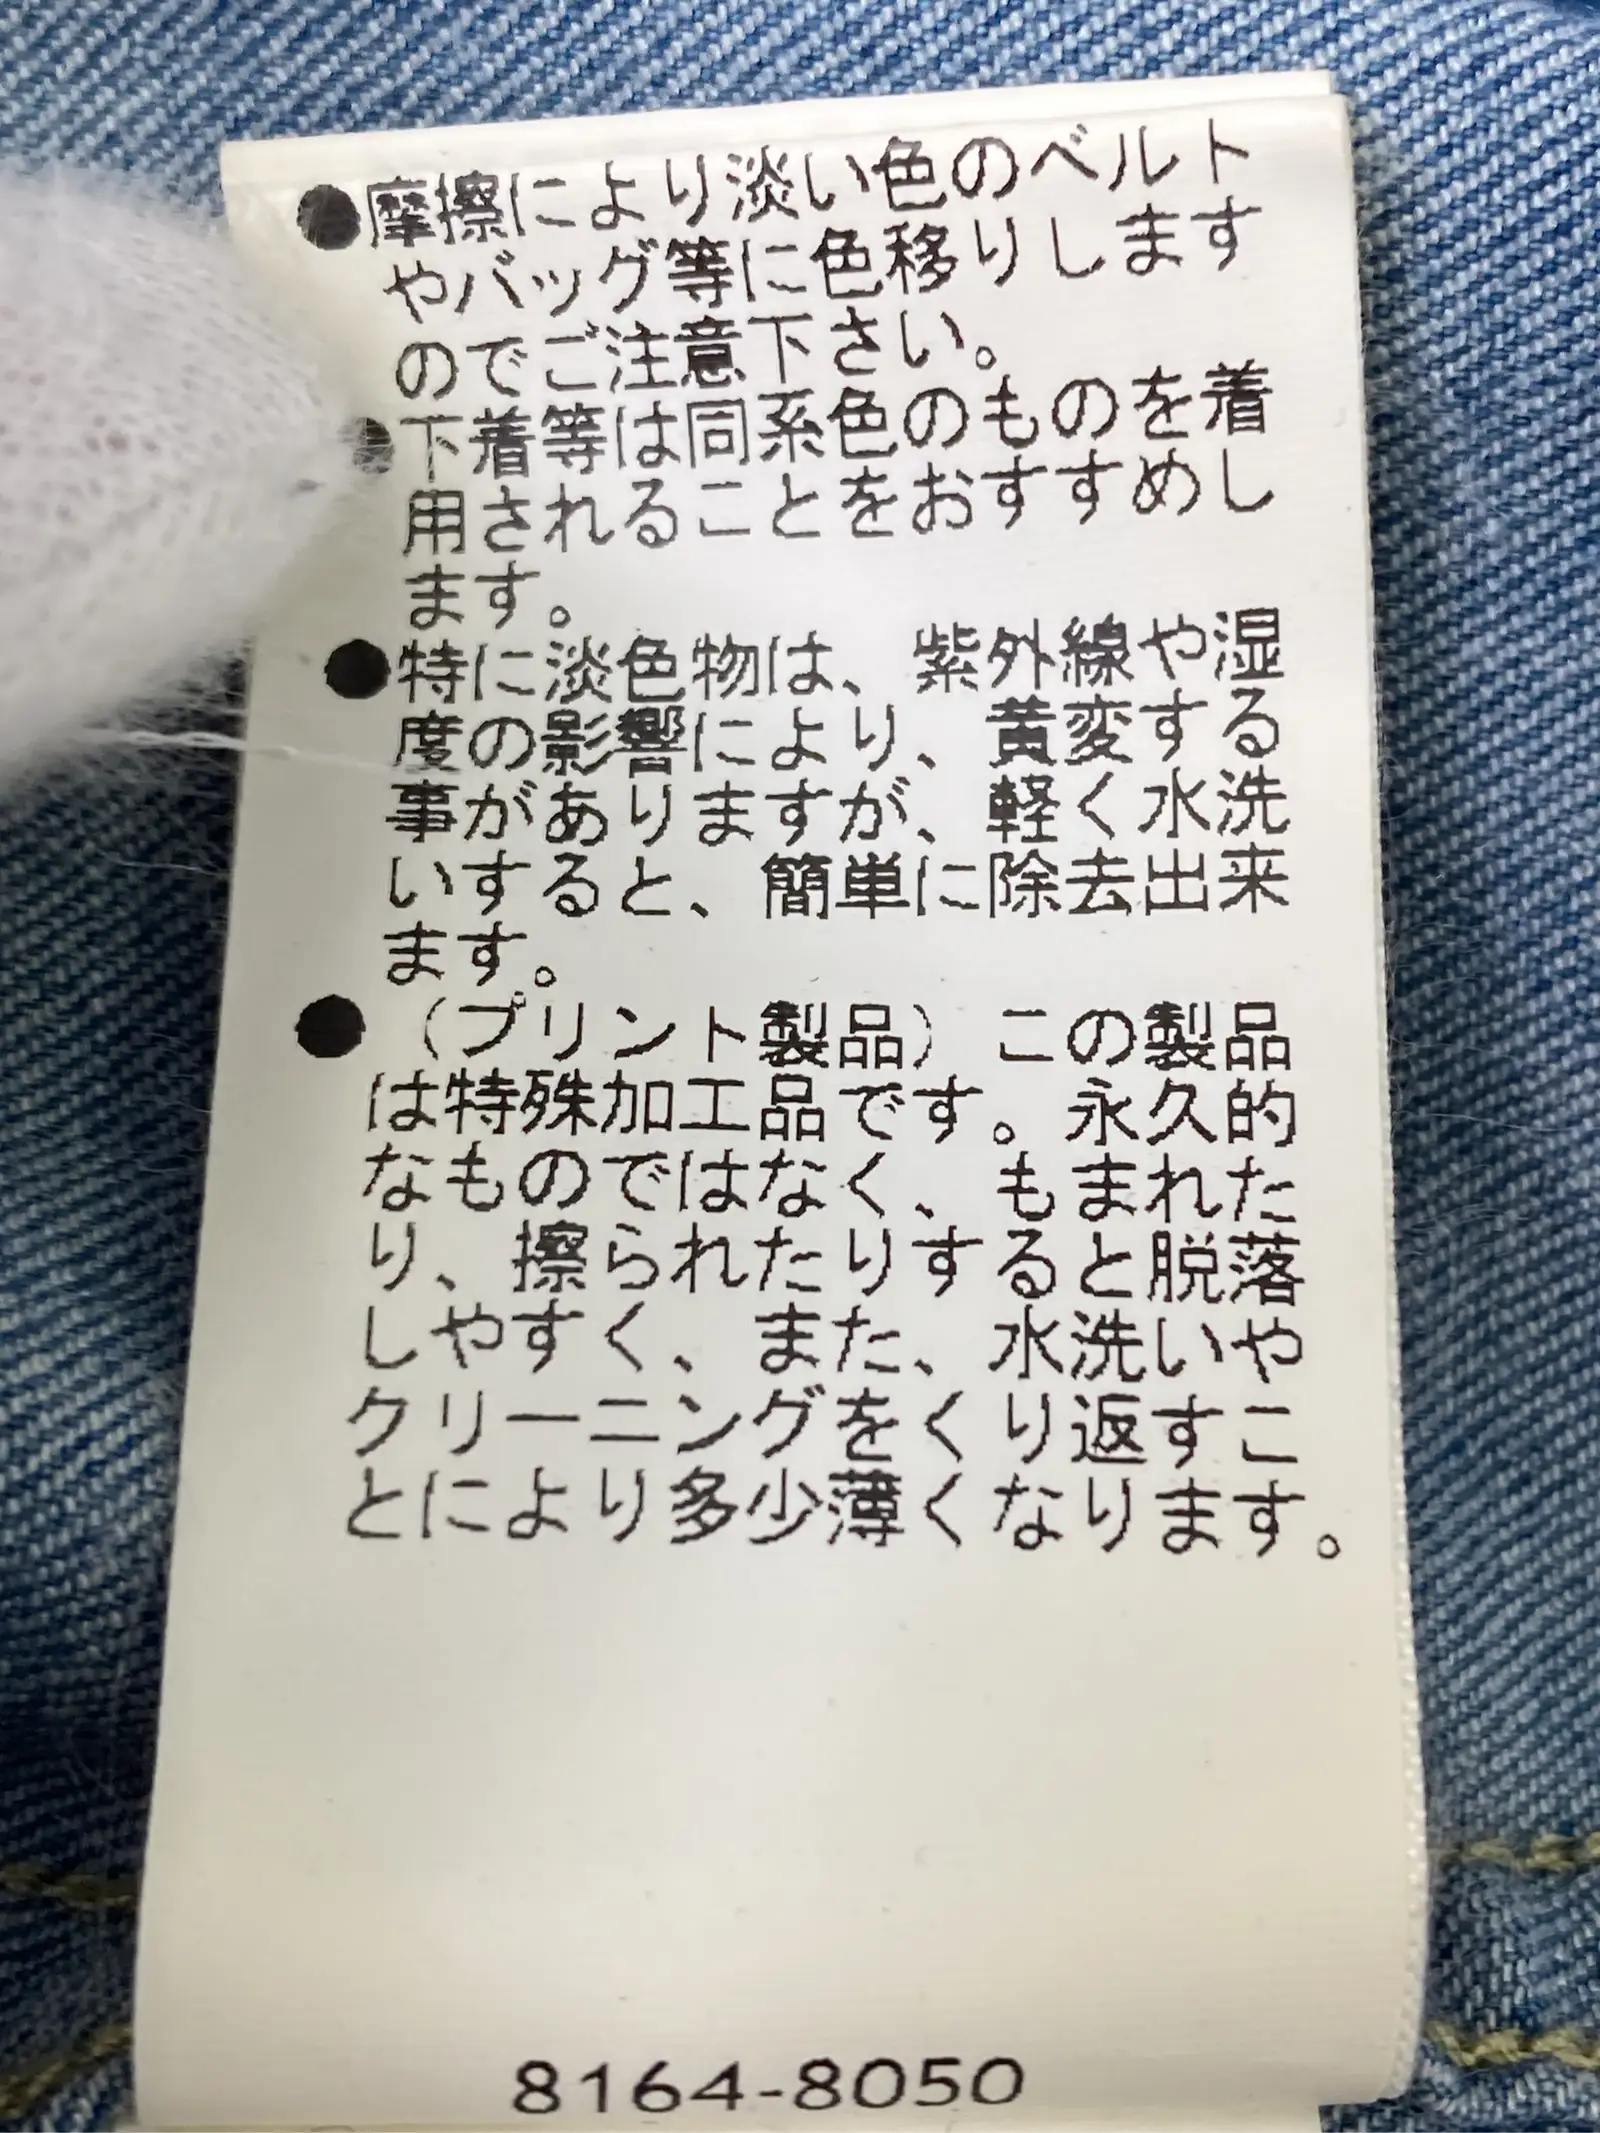 ●摩擦により淡い色のベルト
やバッグ等に色移りします
のでご注意下さい。
●下着等は同系色のものを着
用されることをおすすめし
ます。
●特に淡色物は、紫外線や湿
度の影響により、黄変する
事がありますが、軽く水洗
いすると、簡単に除去出来
ます。
●（プリント製品）この製品
は特殊加工品です。永久的
なものではなく、もまれた
り、擦られたりすると脱落
しやすく、また、水洗いや
クリーニングをくり返すこ
とにより多少薄くなります。
8164-8050